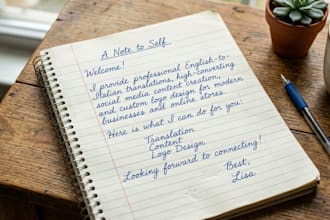 A Note to Self
Welcome!
I provide professional English-to-
Italian translations, high-converting
social media content creation,
and custom logo design for modern
businesses and online stores.
Here is what I can do for you:
Translation
Content
Logo Design
Looking forward to connecting!
Best,
Lisa